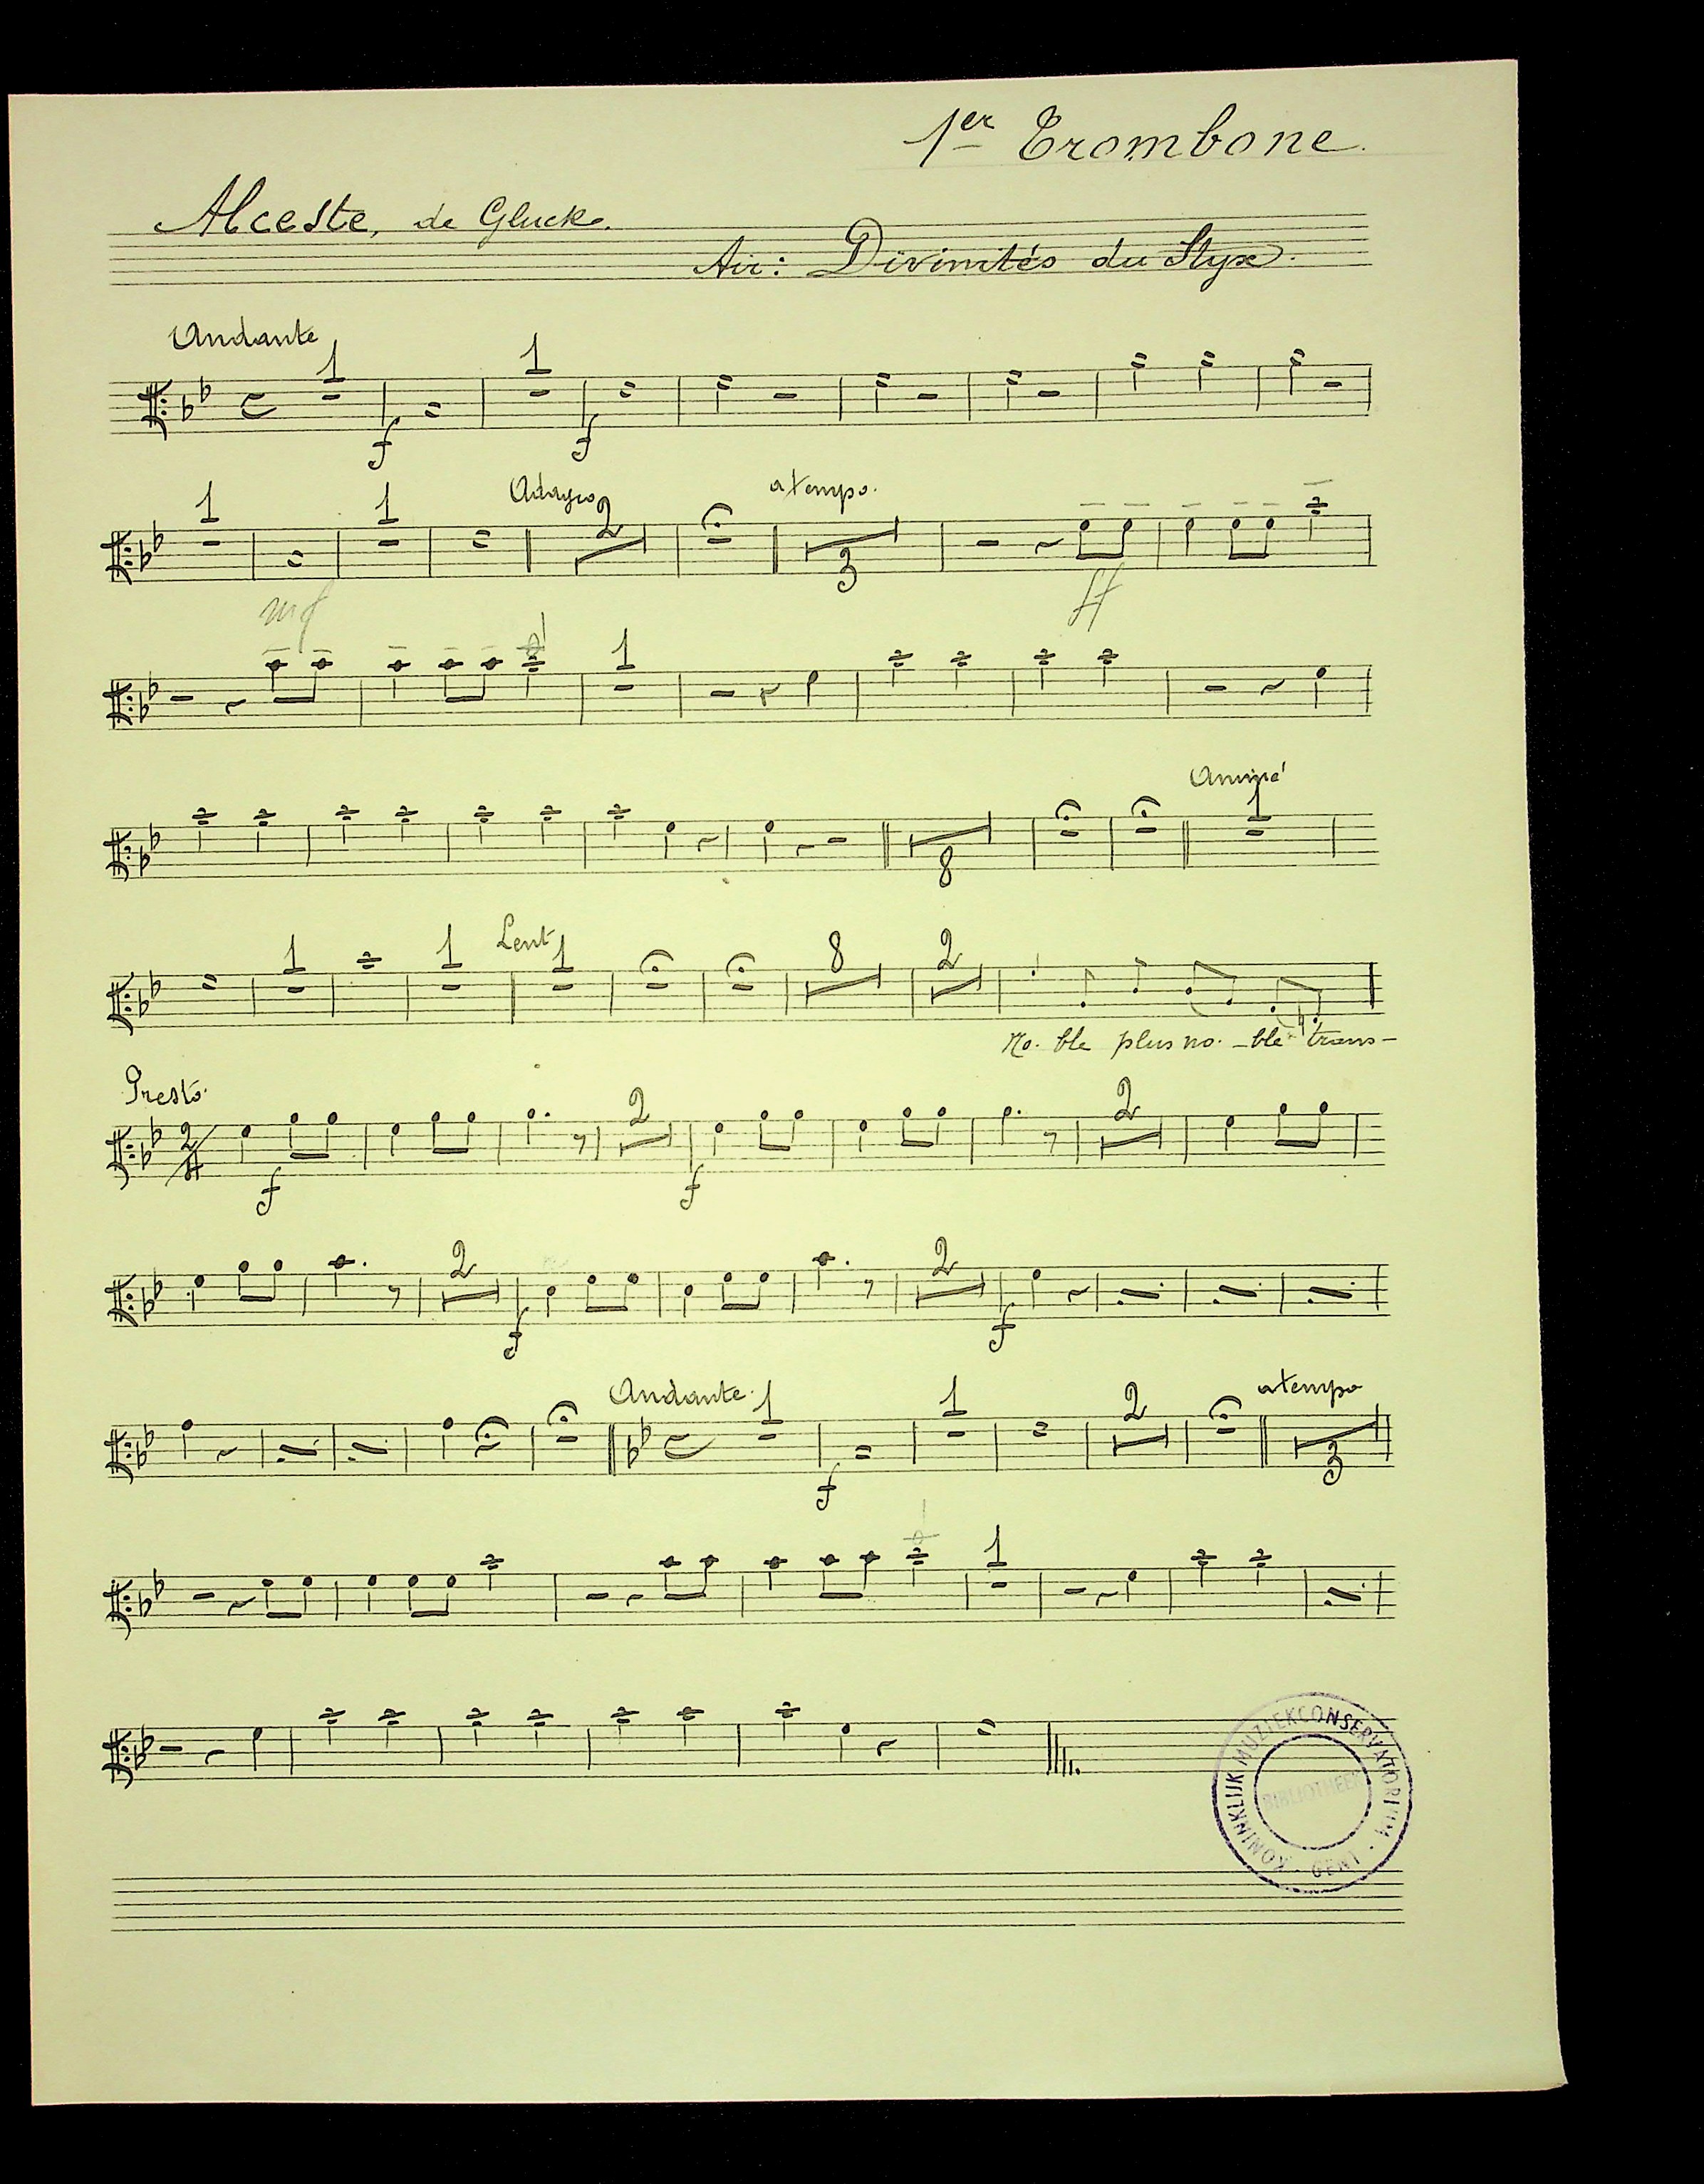 1er Trombone.
Alceste, de Gluck.
Air: Divinités du Styx.
Andante
1 1
f f
1 1 Adagio 2 a tempo.
3
mf ff
1
Animé
1
8
1 1 Lent 1 8 2
No- ble plus no- -ble trans-
Presto.
2 2
2/4
f f
2 2
f f
Andante. 1 1 2 a tempo
C
f 3
1
KONINKLIJK MUZIEKCONSERVATORIUM - GENT -
BIBLIOTHEEK